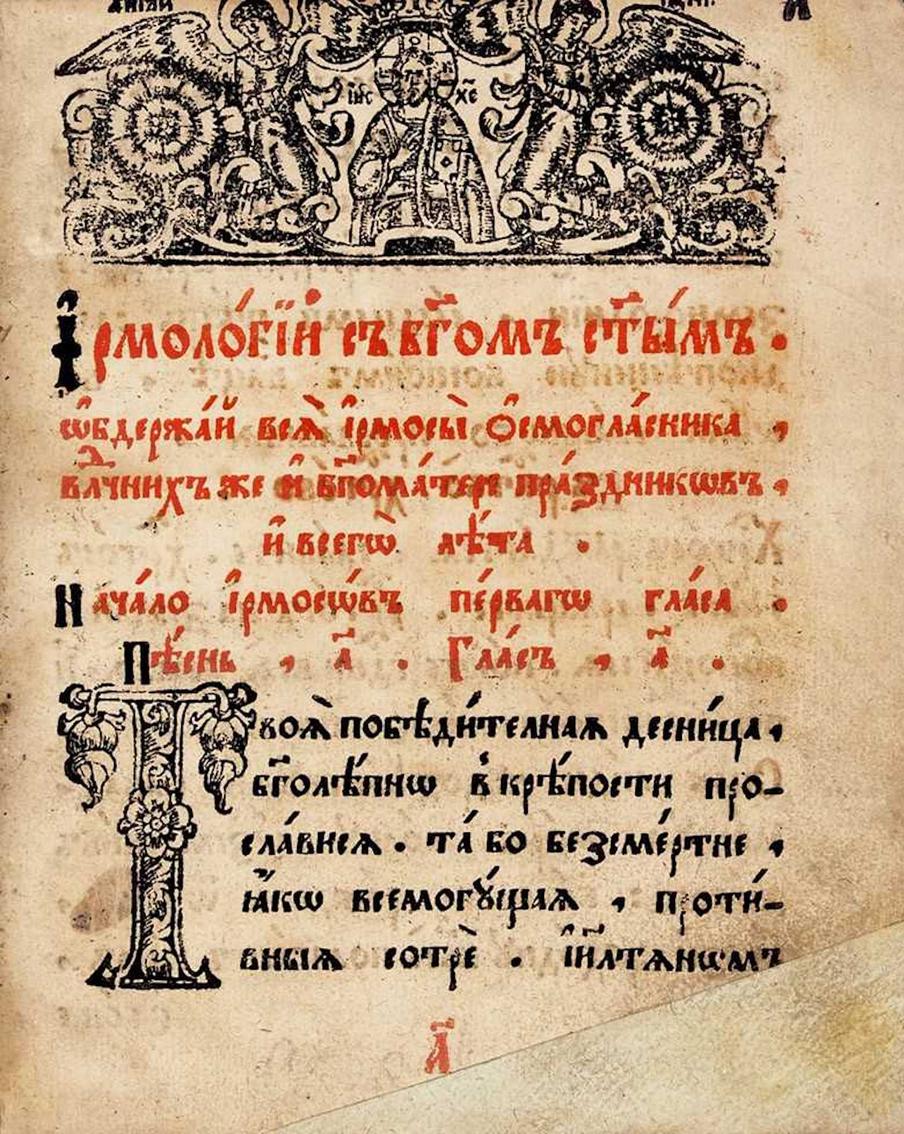 І҆И҃С Х҃С
Ірмоло́гїй съ бг҃омъ ст҃ы́мъ .
ѡ҆бдержа́й всѧ̀ і҆рмосы̀ ѻ҆смогла́сника ,
влⷣчнихъ же и҆ бг҃ома́тере пра́здникѡвъ ,
и҆ всегѡ̀ лѣ́та .
Нача́ло і҆рмосѡ́въ пе́рвагѡ гла́са .
Пѣ́снь , а҃ . Гла́съ , а҃ .
Твоѧ̀ побѣди́телнаѧ десни́ца ,
бг҃олѣ́пнѡ в̾ крѣ́пости про-
сла́висѧ . та́ бо безсме́ртне ,
ꙗ҆́кѡ всемогꙋ́щаѧ , проти́-
вныѧ сотрѐ . і҆и҃лтѧнѡмъ
а҃